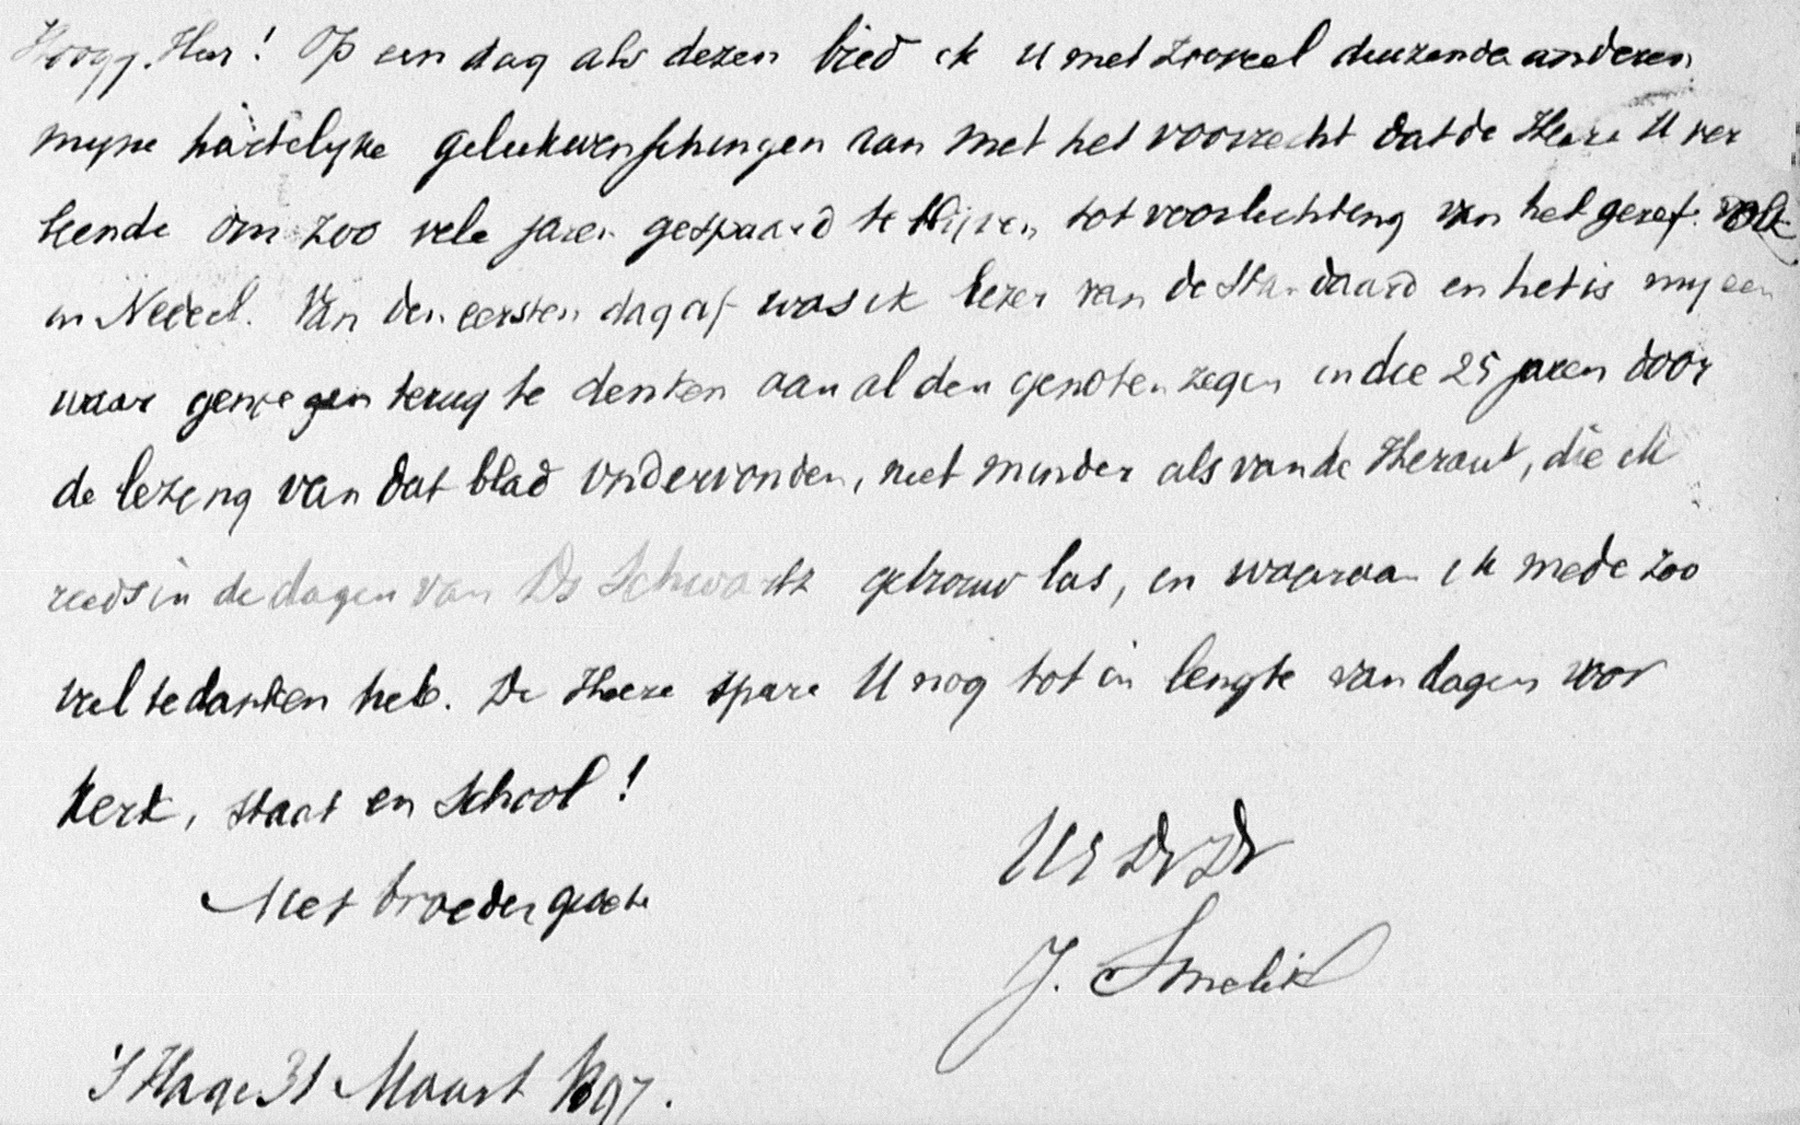 Hoogg. Heer! Op een dag als dezen bied ik U met zooveel duizende anderen
myne hartelyke gelukwenschingen aan met het voorrecht dat de Heere U ver
leende om zoo vele jaren gespaard te blijven tot voorlichting van het geref. volk
in Nederl. Van den eersten dag af was ik lezer van de Standaard en het is my een
waar genoegen terug te denken aan al den genoten zegen in die 25 jaren door
de lezing van dat blad ondervonden, niet minder als van de Heraut, die ik
reeds in de dagen van Ds Schwartz getrouw las, en waaraan ik mede zoo
veel te danken heb. De Heere spare U nog tot in lengte van dagen voor
Kerk, Staat en School!
Met broedergroete
Us Dr Dr
J. Smelik
's Hage 31 Maart 1897.